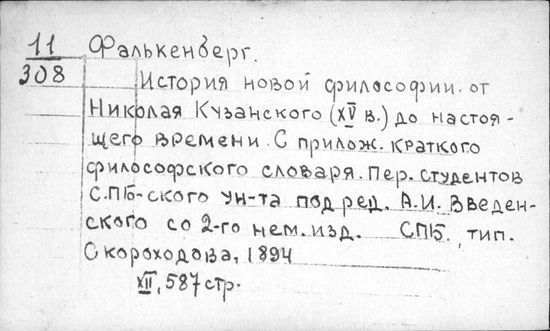 11 Фалькенберг.
308
История новой философии от
Николая Кузанского (XV в.) до настоя-
щего времени. С прилож. краткого
философского словаря. Пер. студентов
С.ПБ-ского ун-та под ред. А.И. Введен-
ского со 2-го нем. изд. СПБ, тип.
Скороходова, 1894
XII, 587 стр.